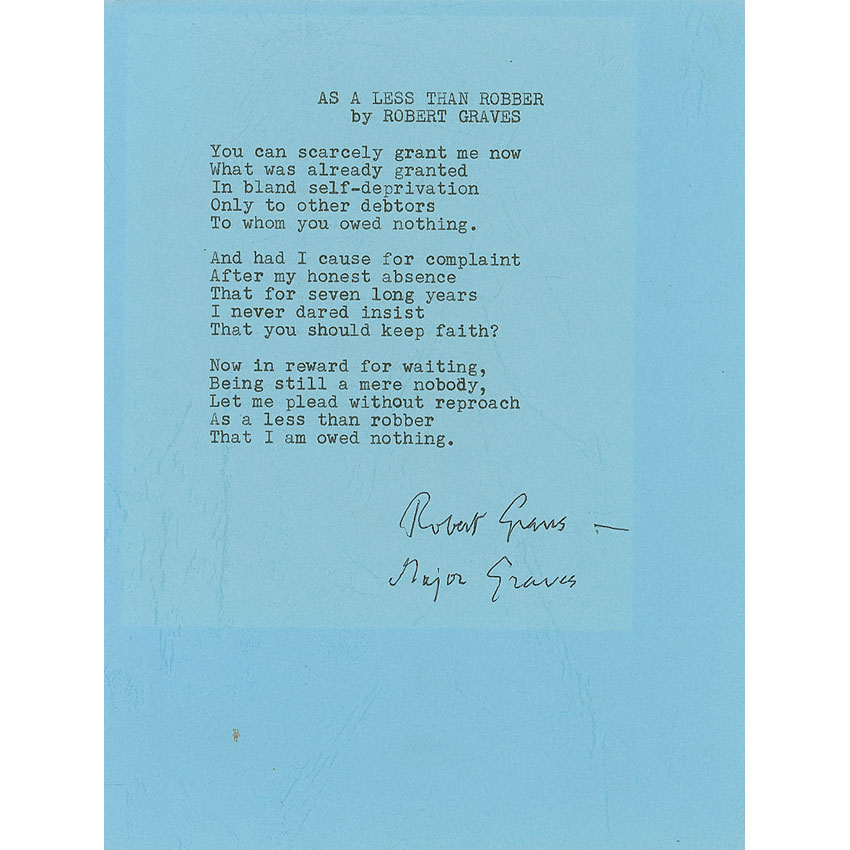 AS A LESS THAN ROBBER
by ROBERT GRAVES
You can scarcely grant me now
What was already granted
In bland self-deprivation
Only to other debtors
To whom you owed nothing.
And had I cause for complaint
After my honest absence
That for seven long years
I never dared insist
That you should keep faith?
Now in reward for waiting,
Being still a mere nobody,
Let me plead without reproach
As a less than robber
That I am owed nothing.
Robert Graves —
Major Graves